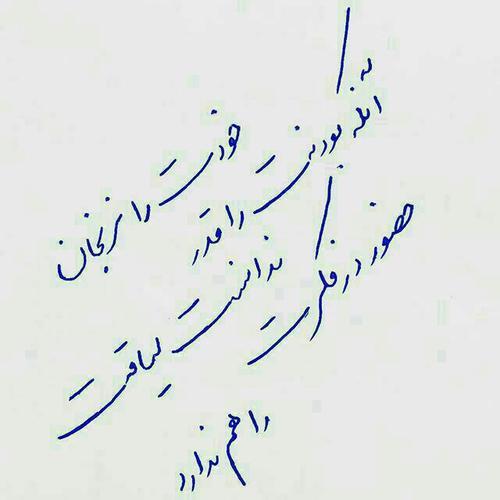 خودت را نرنجان
آنکه بودنت را قدر
ندانست لیاقت
حضور در فکرت
را هم ندارد